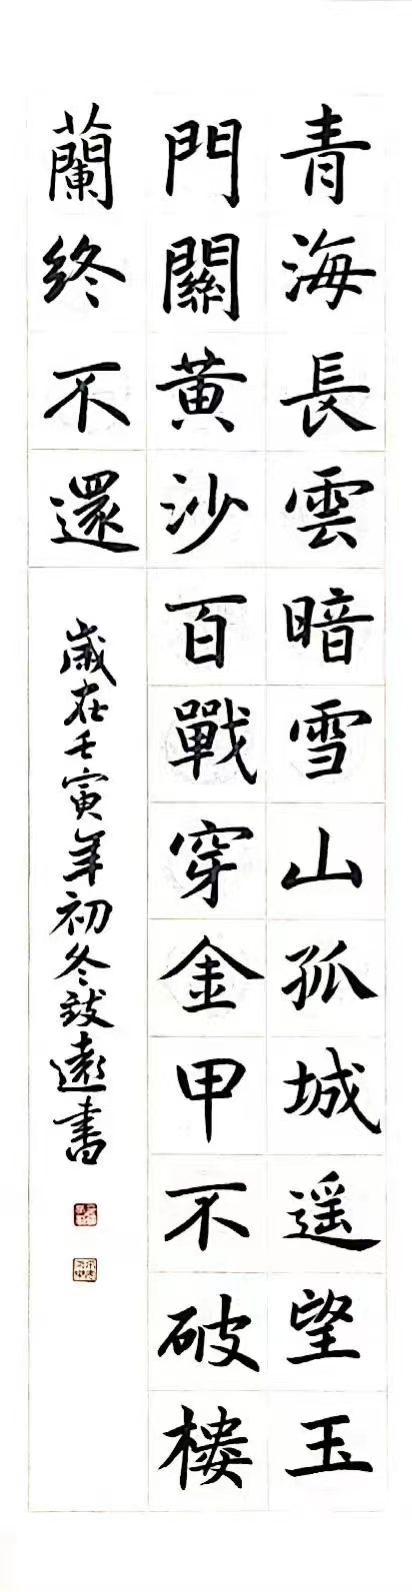 青海長雲暗雪山孤城遥望玉
門關黃沙百戰穿金甲不破樓
蘭終不還
歲在壬寅年初冬致遠書